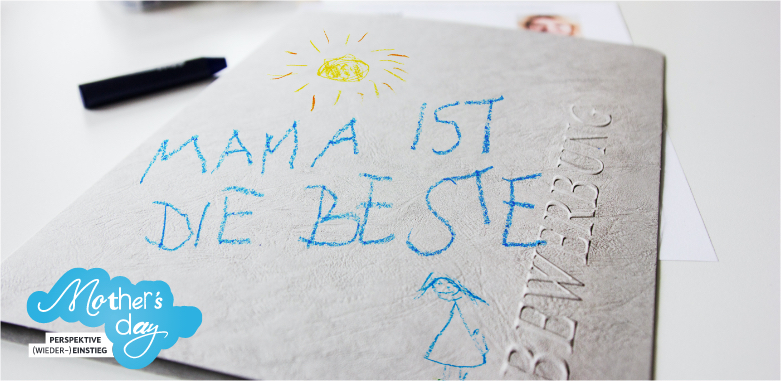 MAMA IST
DIE BESTE
BEWERBUNG
Mother's
day
PERSPEKTIVE
(WIEDER-) EINSTIEG